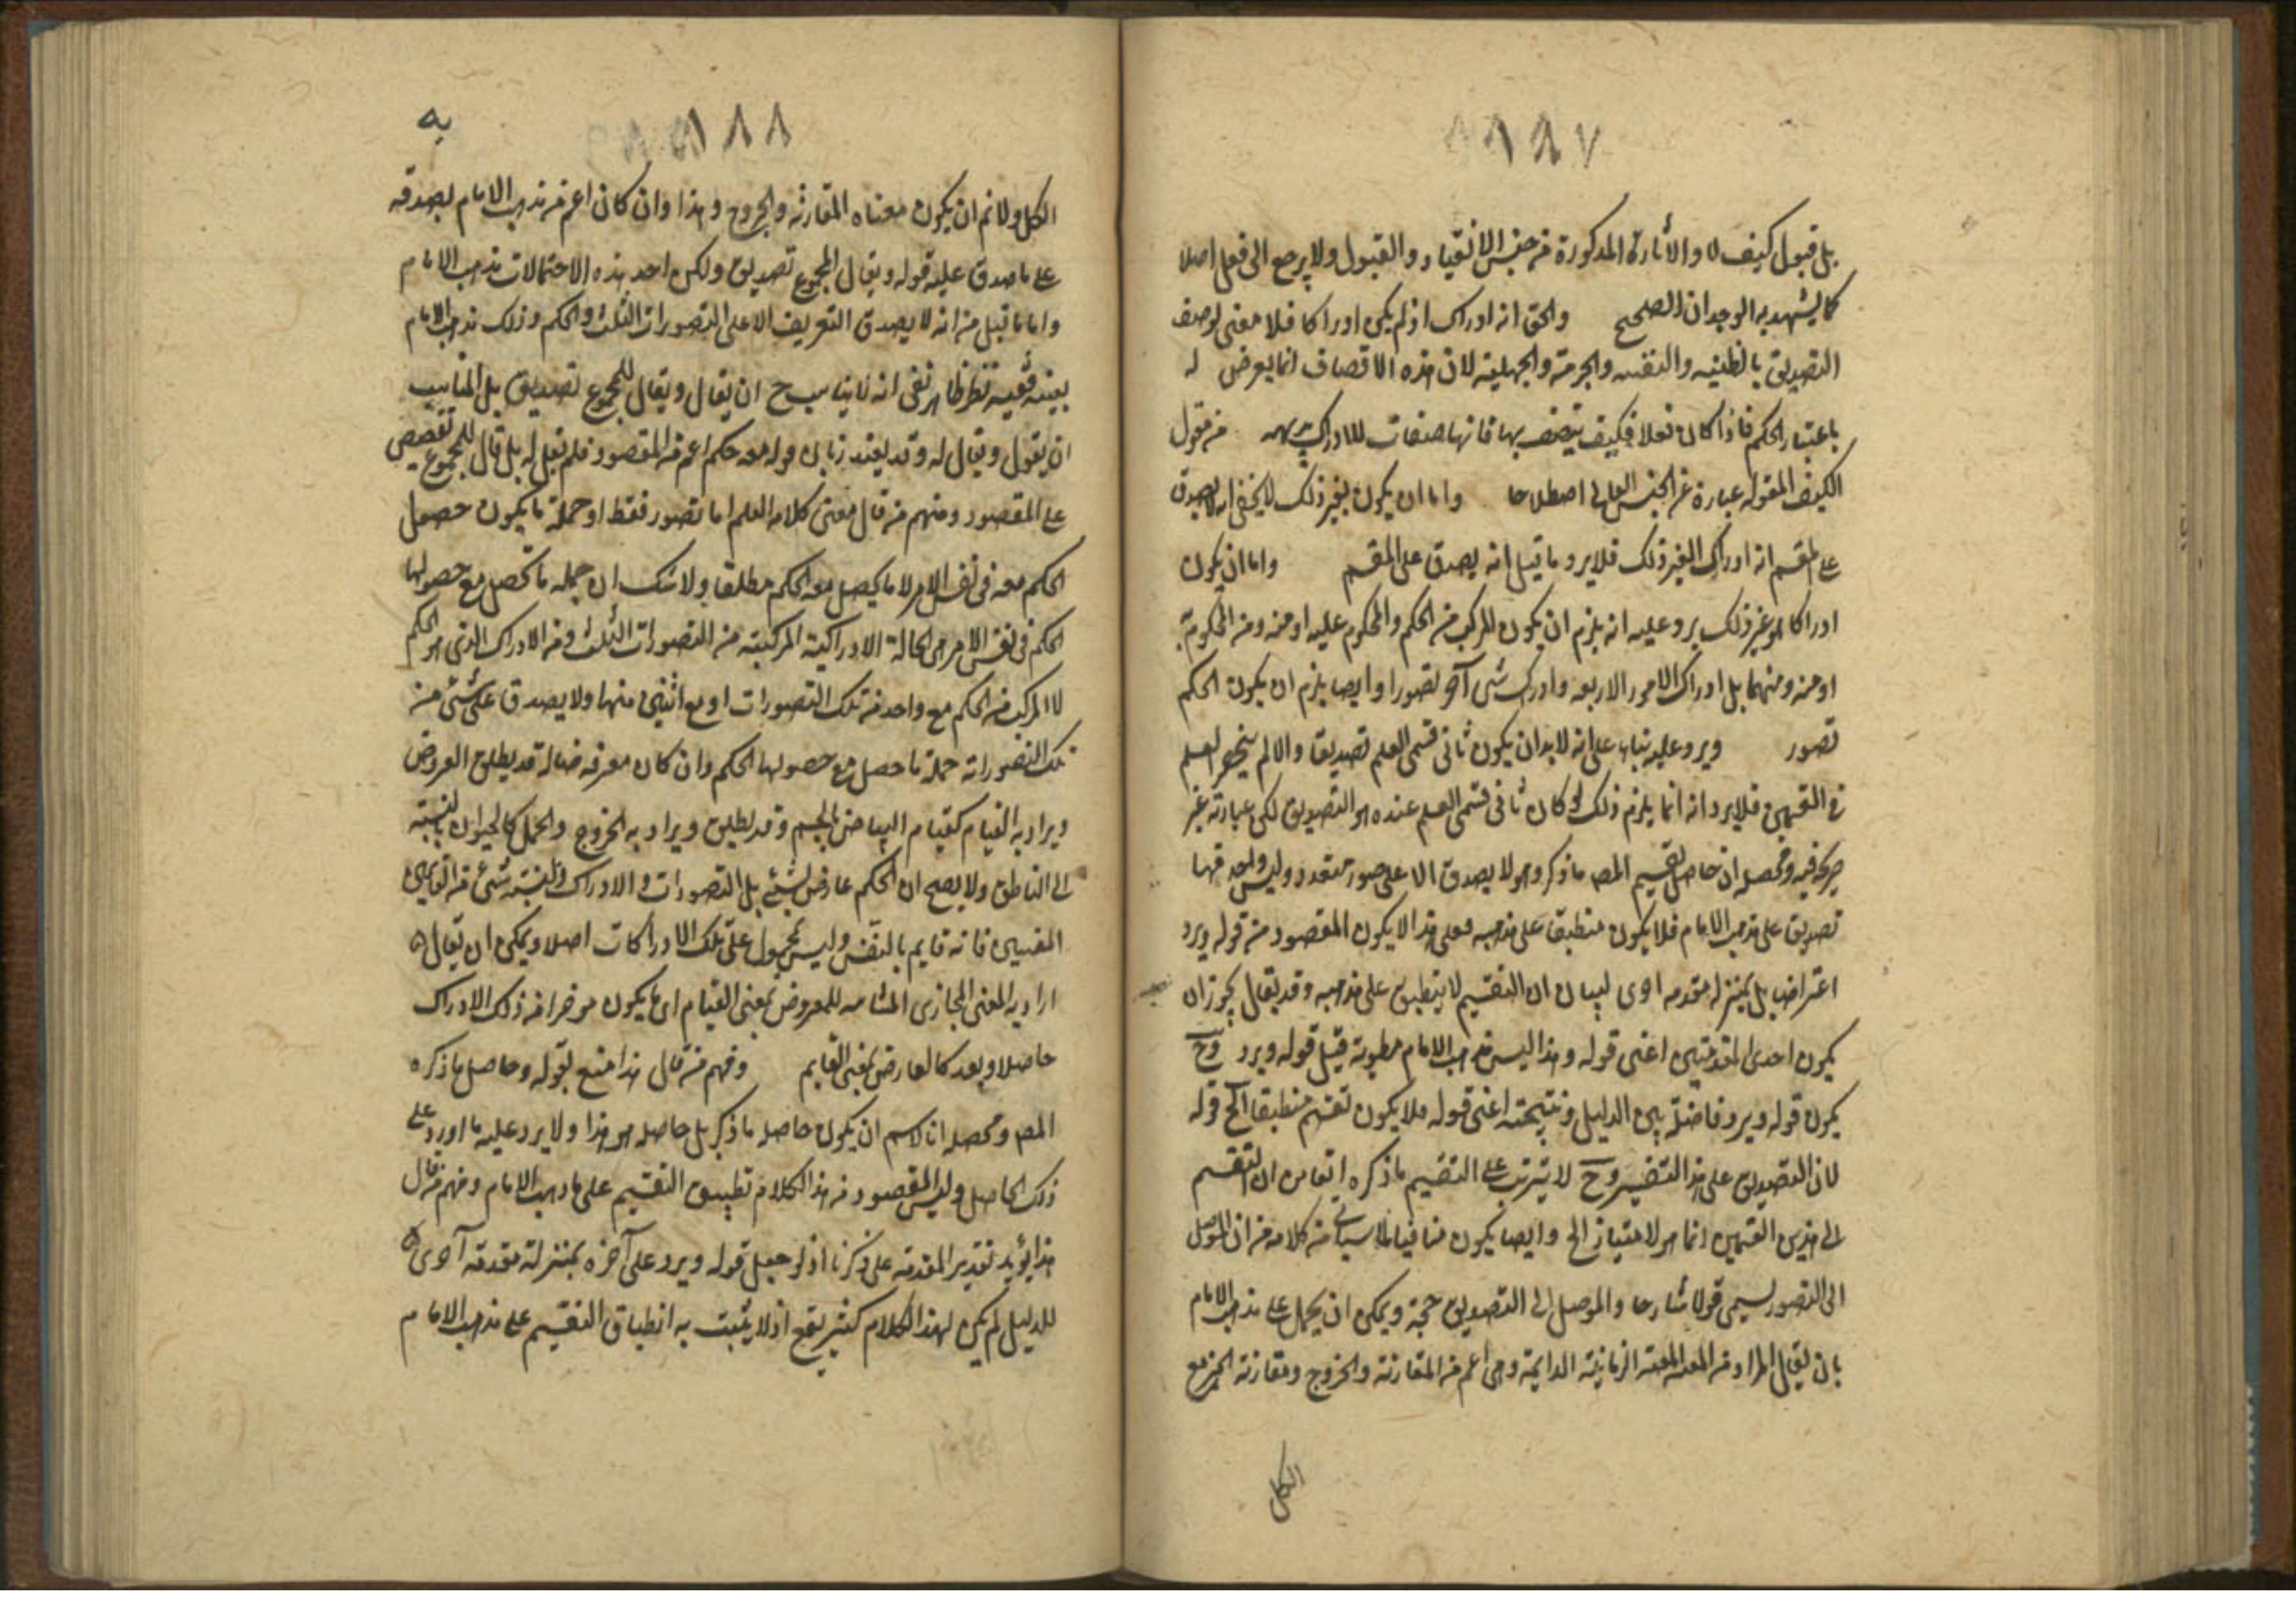 ١٨٧
بل قبول كيف لا والاثارة المذكورة من جنس الانقياد والقبول ولا يرجع الى فعل اصلا
كما يشهد به الوجدان الصحيح والحق انه ادراك اذ لم يكن ادراكا فلا معنى لوصف
التصديق بالظنية والجزمية والجهلية لان هذه الاتصاف انما يعرض له
باعتبار الحكم فاذا كان فعلا فكيف يتصف بها فانها صفات للادراك من مقول
الكيف المقولة عبارة عن الجنس العالى اصطلاحا واما ان يكون لغير ذلك لا يخفى انه لا يصدق
على المقسم انه ادراك لغير ذلك فلا يرد ما قيل انه يصدق على المقسم واما ان يكون
ادراكا هو غير ذلك يرد عليه انه يلزم ان يكون المركب من الحكم والمحكوم عليه او منه ومن المحكوم به
او منه ومنهما بل ادراك الامور الاربعه وادراك شى آخر تصورا وايضا يلزم ان يكون الحكم
تصور ويرد عليه بناء على انه لا بد ان يكون ثانى قسمى العلم تصديقا والا لم ينحصر العلم
فى القسمين فلا يرد انه انما يلزم ذلك لو كان ثانى قسمى العلم عنده هو التصديق لكن عبارته غير
صريحة فيه ومحصله ان حاصل تقسيم المص ما ذكر وهو لا يصدق الا على صور متعدد وليس واحد منها
تصديق على مذهب الامام فلا يكون منطبقا على مذهبه فعلى هذا لا يكون المقصود من قوله ويرد
اعتراضا بل بمنزلة مقدمه اخرى لبيان ان التقسيم لا ينطبق على مذهبه وقد يقال يجوز ان
يكون احدى المقدمتين اعنى قوله وهذا ليس مذهب الامام مطوية قبل قوله ويرد وح
يكون قوله ويرد فاصلة بين الدليل ونتيجته اعنى قوله فلا يكون تقسيم منطبقا الخ قوله
لان التصديق على هذا التفسير وح لا يترتب على التقسيم ما ذكره انفا من ان التقسيم
الى هذين القسمين انما هو لامتياز الخ وايضا يكون منافيا لما سياتى من كلامه من ان الموصل
الى التصور يسمى قولا شارحا والموصل الى التصديق حجة ويمكن ان يحمل على مذهب الامام
بان يقال المراد من المعية المعية الزمانية الدايمة وهى اعم من المقارنة والخروج ومقارنة الجزء مع
الكل
١٨٨
به
الكل ولا نم ان يكون معناه المقارنة والخروج وهذا وان كان اعم من مذهب الامام لصدقه
على ما صدق عليه قوله ويقال للمجموع تصديق ولكن احد هذه الاحتمالات مذهب الامام
واما ما قيل من انه لا يصدق التعريف الا على التصورات الثلث والحكم وذلك مذهب الامام
بعينه ففيه نظر ظاهر نعم انه لا يناسب ح ان يقال ويقال للمجموع تصديق بل المناسب
ان يقول ويقال له وقد يعتذر بان قوله معه حكم اعم من المقصود فلم يقل له بل قال للمجموع تنصيص
على المقصود ومنهم من قال معنى كلامه العلم اما تصور فقط او جملة ما يكون حصول
الحكم معه فى نفس الامر لا ما يحصل معه الحكم مطلقا ولا شك ان جملة ما تحصل مع حصولها
الحكم فى نفس الامر هى الحالة الادراكية المركبة من التصورات الثلث ومن الادراك الذى هو الحكم
لا المركب من الحكم مع واحد من تلك التصورات او مع اثنين منها ولا يصدق على شئ من
تلك التصورات جملة ما حصل مع حصولها الحكم وان كان معرفه قد يطلق العروض
ويراد به القيام كقيام البياض بالجسم وقد يطلق ويراد به الخروج والحمل كالحيوان بالنسبة
الى الناطق ولا يصح ان الحكم عارض لشئ بل التصورات والادراك بالنسبة شئ من
المعنيين فانه قايم بالنفس وليس بمحمول على تلك الادراكات اصلا ويمكن ان يقال
اراد به المعنى المجازى المشابه للمعروض بمعنى القيام اى يكون موخرا من ذلك الادراك
حاصلا وبعد كالعارض بمعنى القايم ومنهم من قال هذا منع لقوله وحاصل ما ذكره
المص ومحصله انا لا نسلم ان يكون حاصله ما ذكر بل حاصله هو هذا ولا يرد عليه ما اورد على
ذلك الحاصل وليس المقصود من هذا الكلام تطبيق التقسيم على مذهب الامام ومنهم من قال
هذا يؤيد تقدير المقدمة على ما ذكرنا اذ لو جعل قوله ويرد على آخره بمنزلة مقدمة آخرى
للدليل لم يكن لهذا الكلام كثير نفع اذ لا يثبت به انطباق التقسيم على مذهب الامام